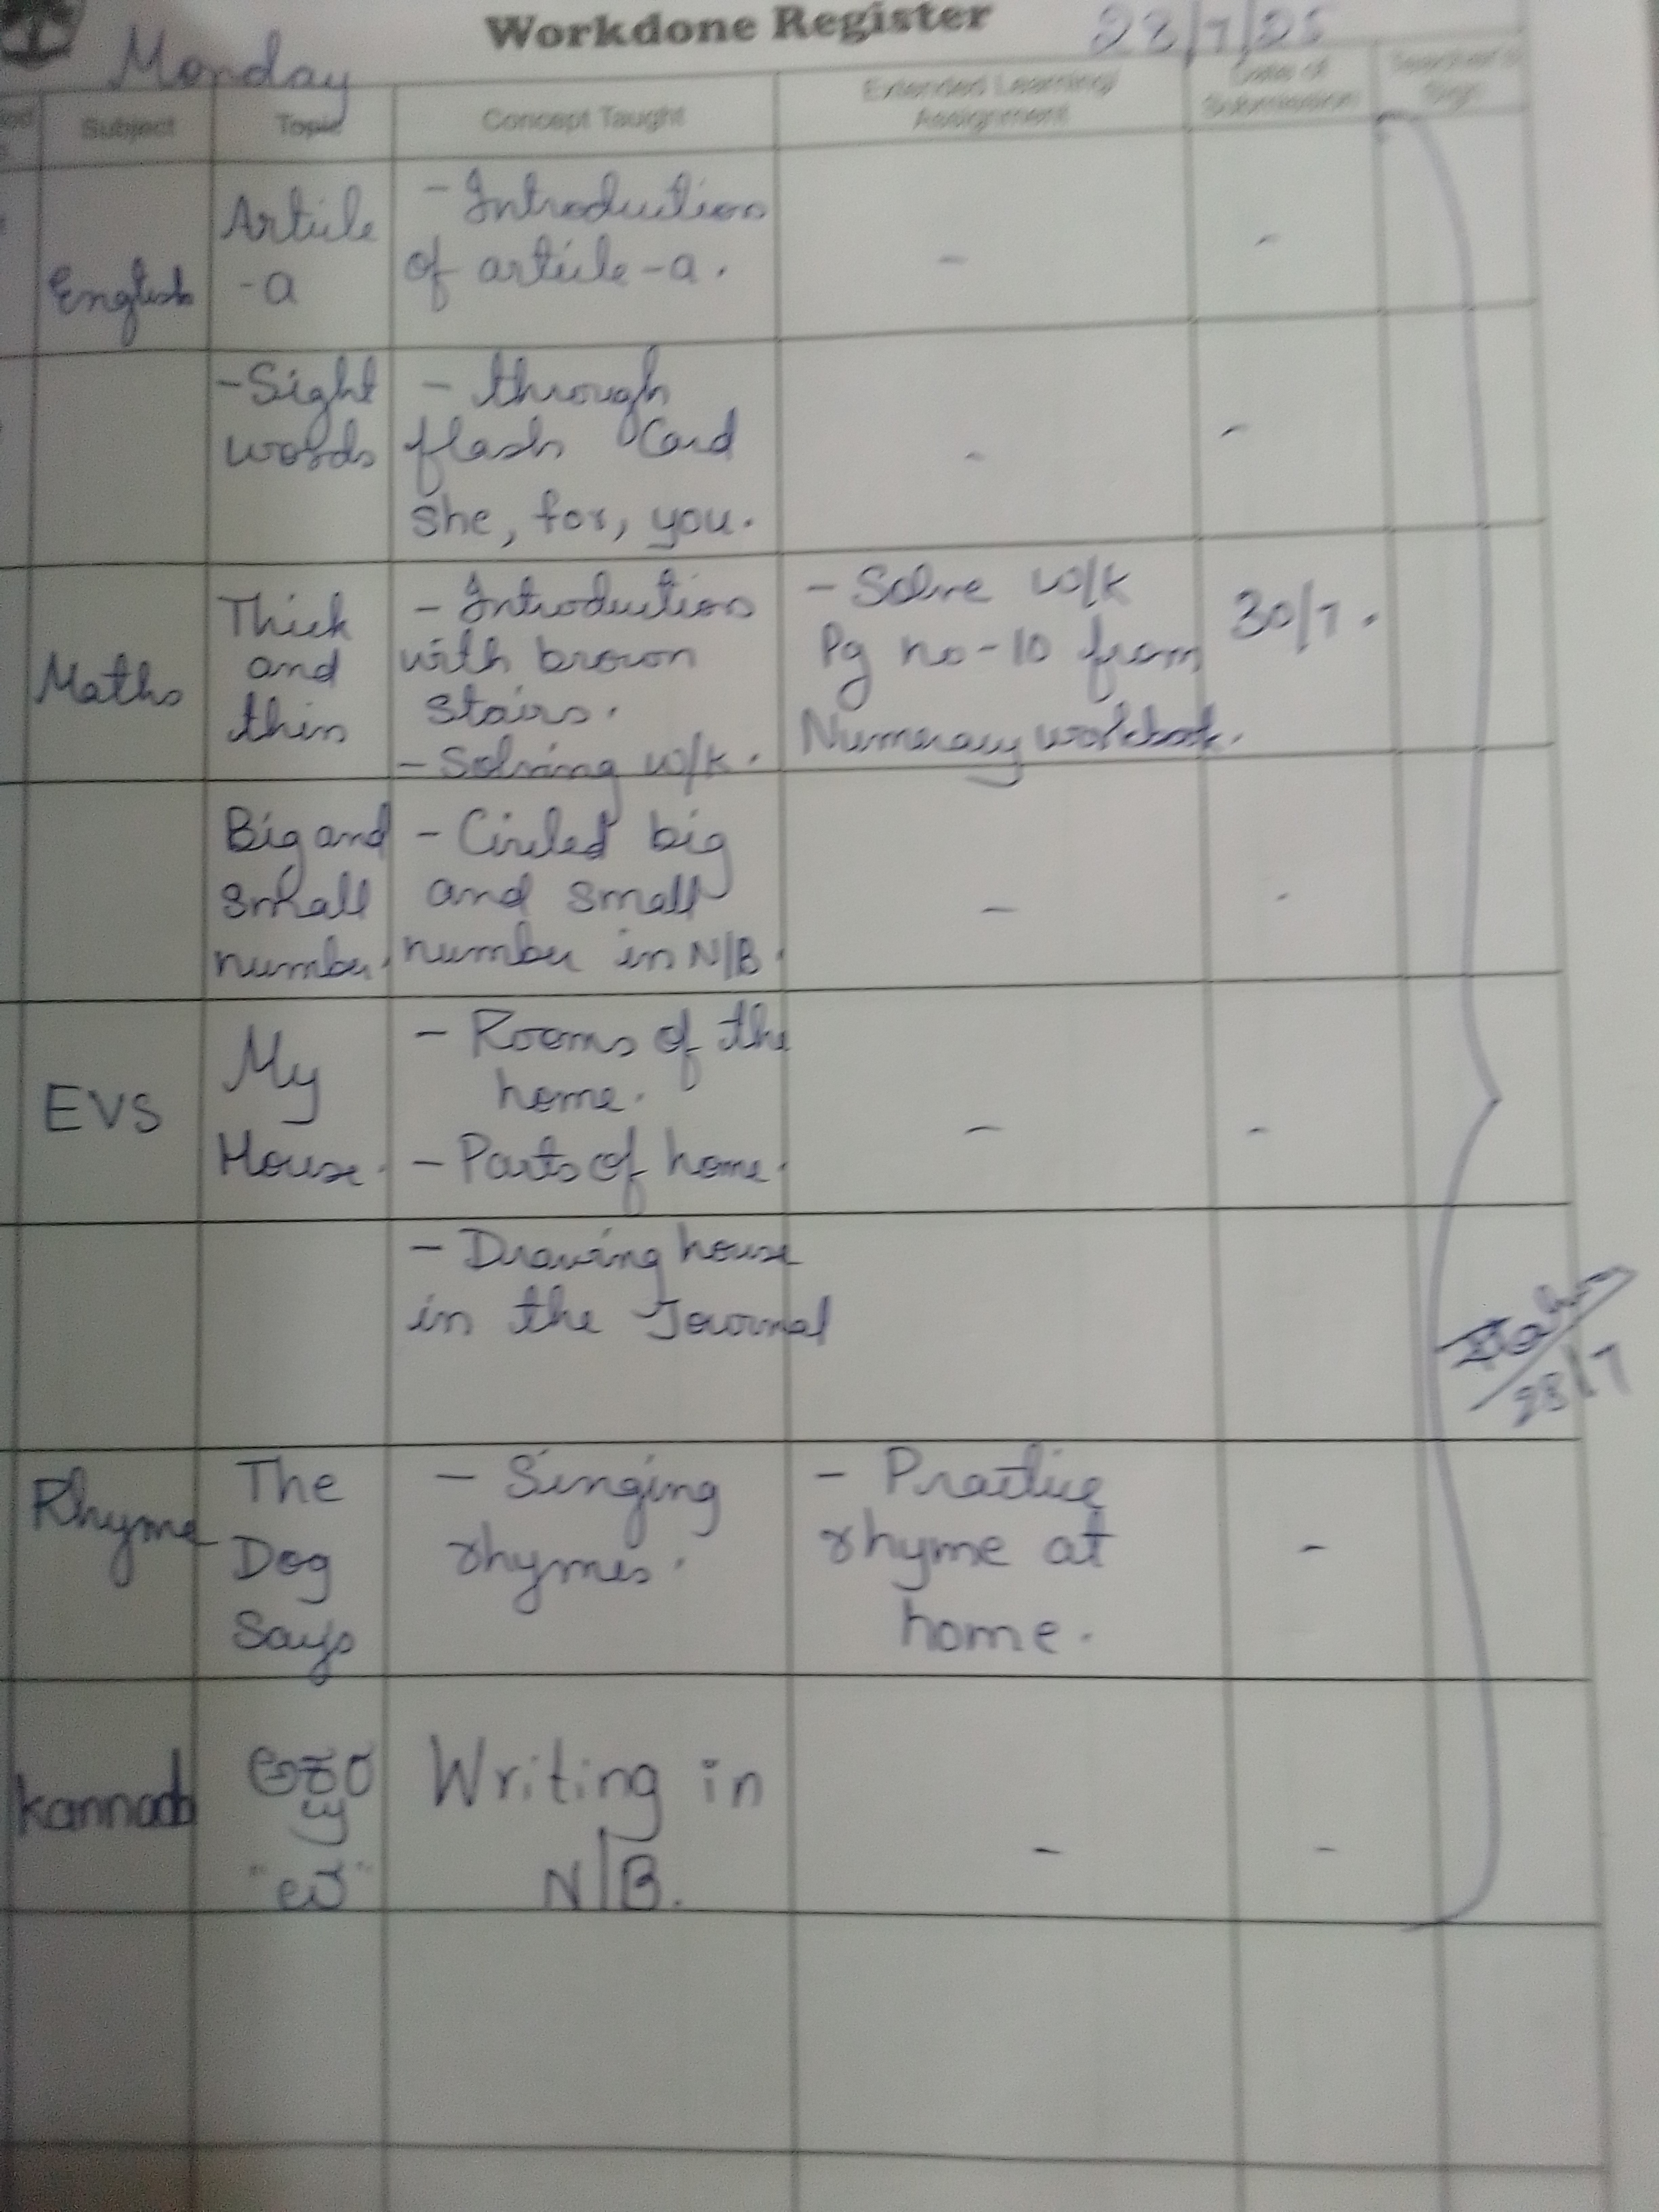 Workdone Register
Monday
28/7/25
Subject
Topic
Concept Taught
Extended Learning/
Assignment
Date of
Submission
Teacher's
Sign
English
Article
-a
- Introduction
of article -a.
-
-
-Sight
words
- through
flash Card
she, for, you.
-
-
Maths
Thick
and
thin
- Introduction
with brown
stairs.
- Solving w/k.
- Solve w/k
Pg no-10 from
Numeracy workbook.
30/7.
Big and
small
number.
- Circled big
and small
number in N/B.
-
-
EVS
My
House.
- Rooms of the
home.
- Parts of home.
-
-
- Drawing house
in the Journal
28/7
Rhyme
The
Dog
Says
- Singing
rhymes.
- Practice
rhyme at
home.
-
kannada
Writing in
N/B.
-
-